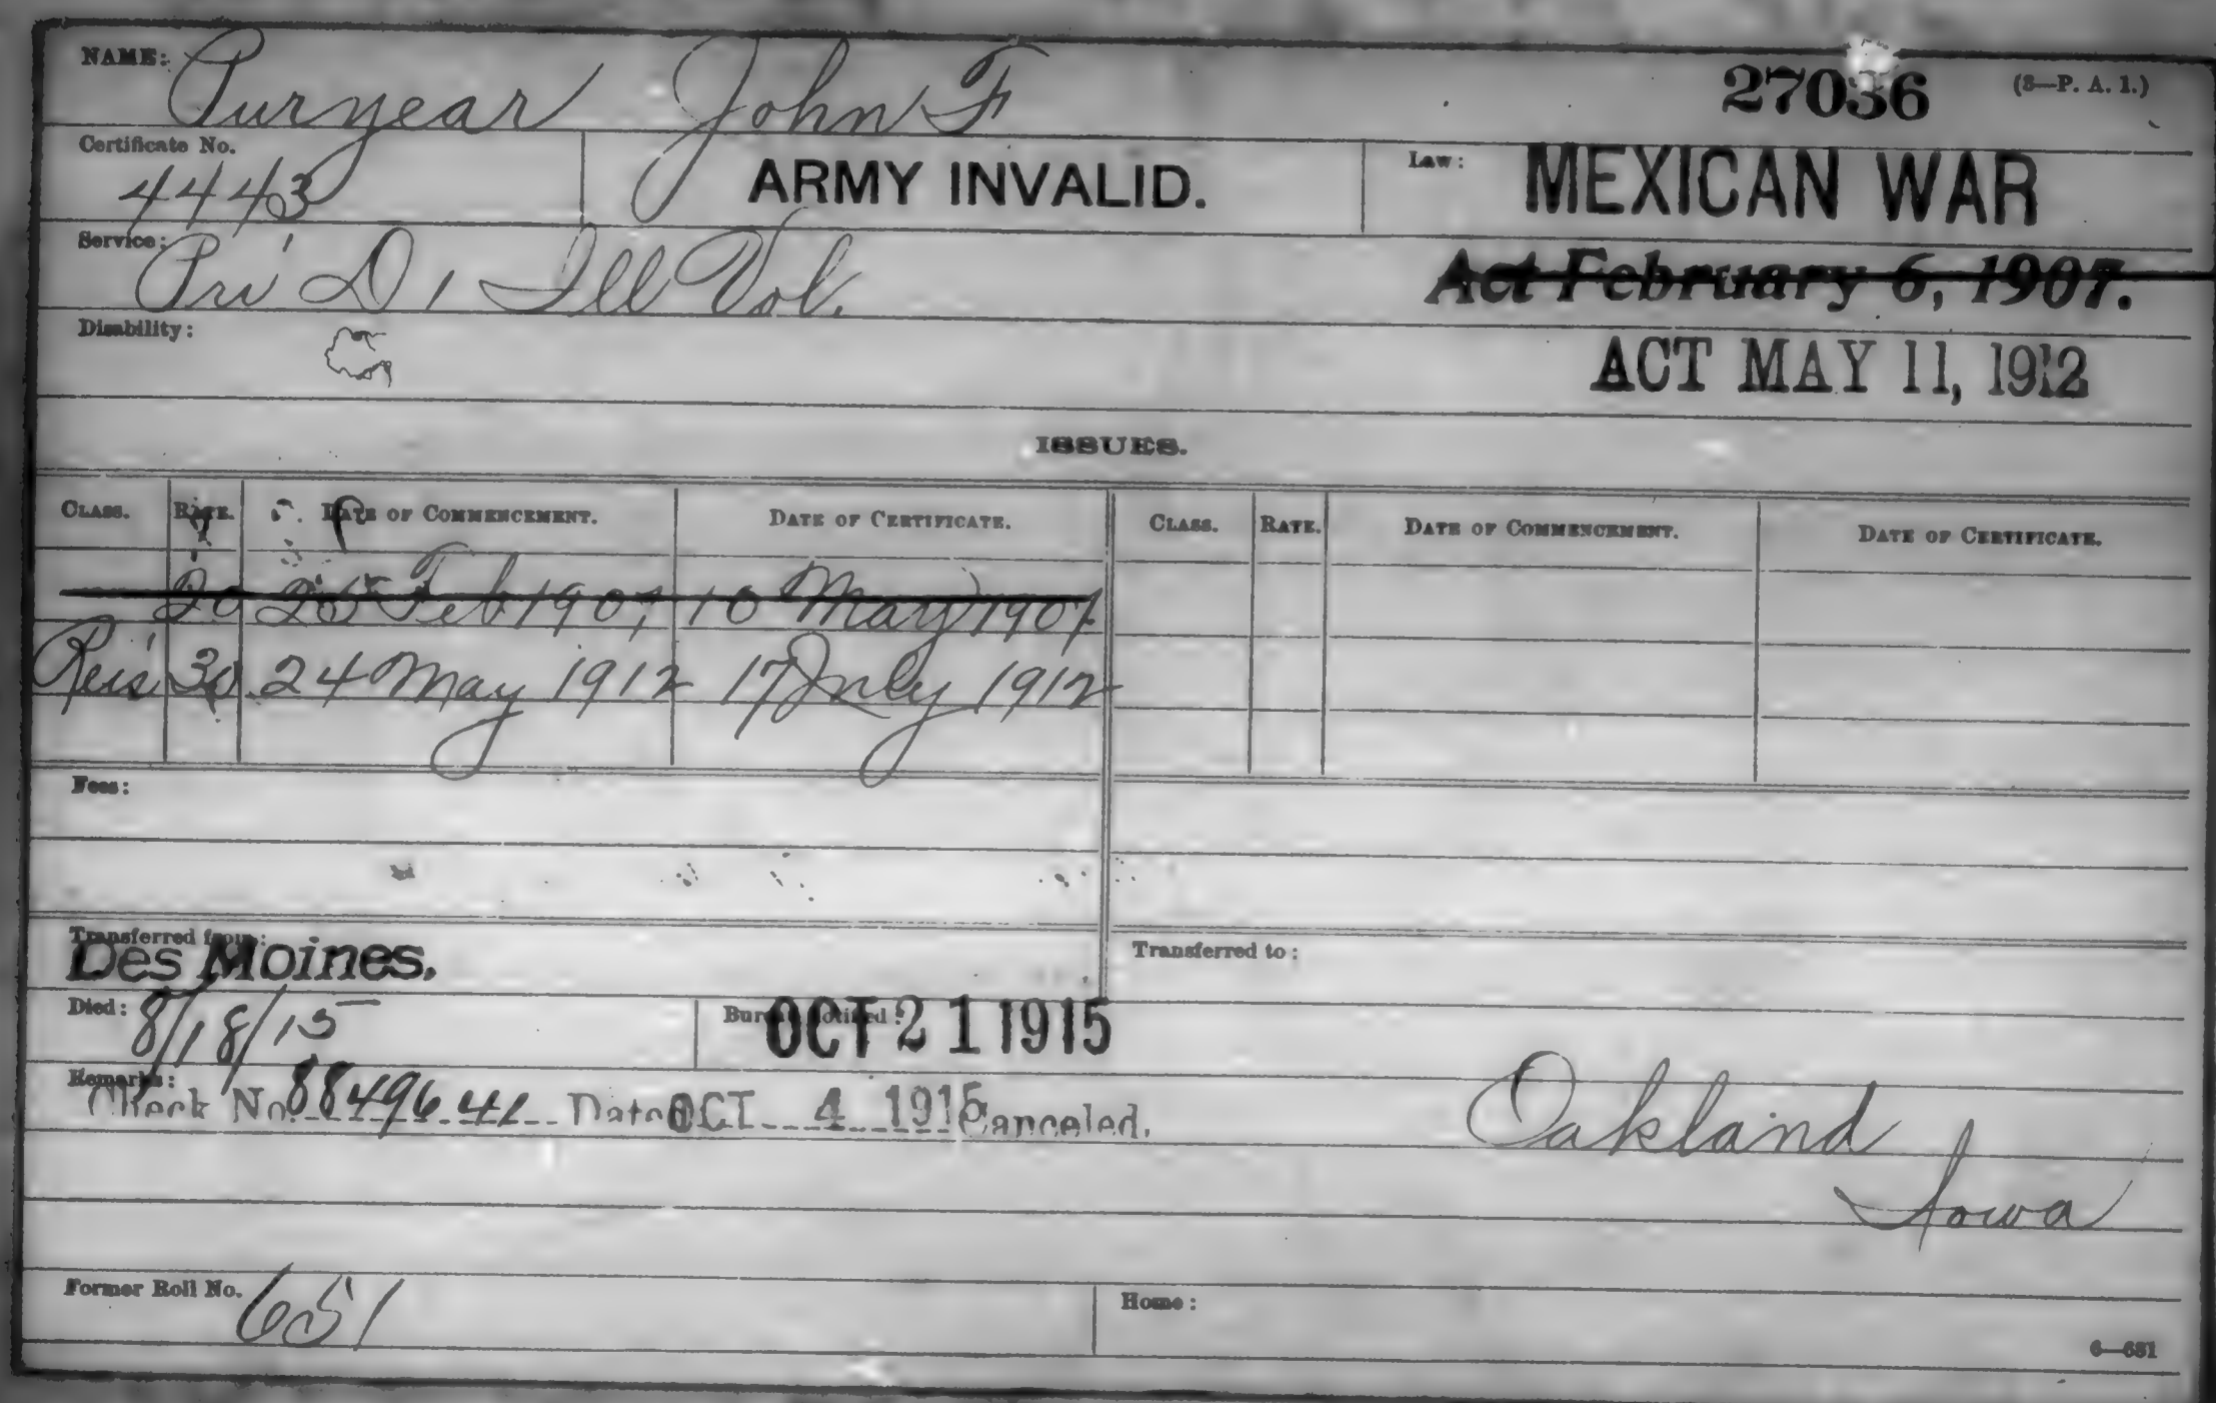 NAME: Puryear John F
27036 (3—P. A. 1.)
Certificate No. 4443
ARMY INVALID.
Law: MEXICAN WAR
Service: Pri D, 1 Ill Vol.
Act February 6, 1907.
Disability:
ACT MAY 11, 1912
ISSUES.
CLASS. RATE. DATE OF COMMENCEMENT. DATE OF CERTIFICATE. CLASS. RATE. DATE OF COMMENCEMENT. DATE OF CERTIFICATE.
20 Feb 1907 10 May 1907
Reis 30 24 May 1912 17 July 1912
Fees:
Transferred from: Des Moines.
Transferred to:
Died: 8/18/15
Bureau notified: OCT 21 1915
Remarks:
Check No. 8849641 Date OCT 4 1915 Canceled.
Oakland
Iowa
Former Roll No. 651
Home:
6—681